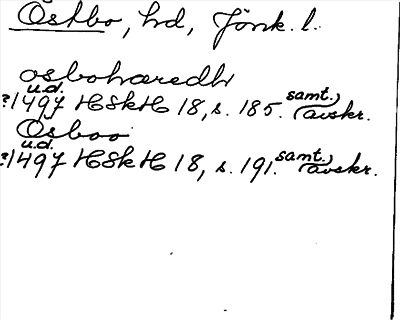 Östbo, hd, Jönk. l.
osbohæredh
u.d.
?1497 HSkH 18, s. 185. samt. avskr.
Osboo
u.d.
?1497 HSkH 18, s. 191. samt. avskr.